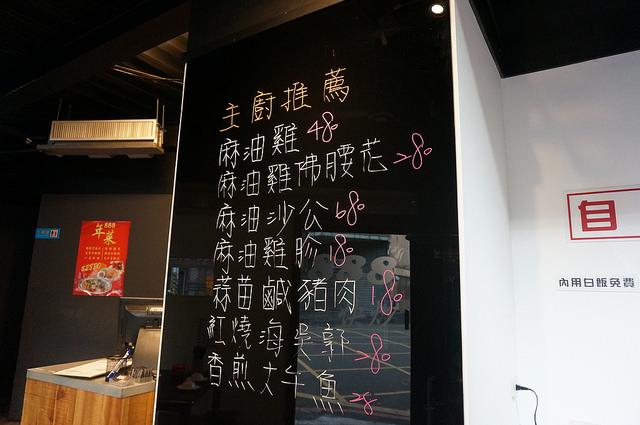 主廚推薦
麻油雞 480
麻油雞佛腰花 280
麻油沙公 680
麻油雞胗 180
蒜苗鹹豬肉 180
紅燒海吳郭 280
香煎大午魚
年菜
自
內用白飯免費